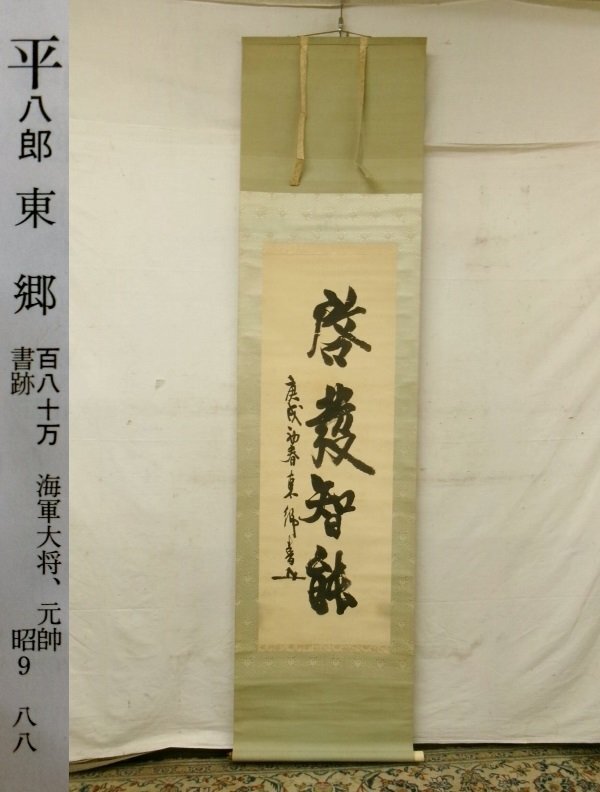 平八郎 東郷
百八十万 海軍大将、元帥
書跡 昭9 八八
啓發智能
庚戌初春東郷書